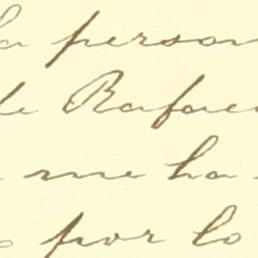 la person
de Rafae
me ha
por lo